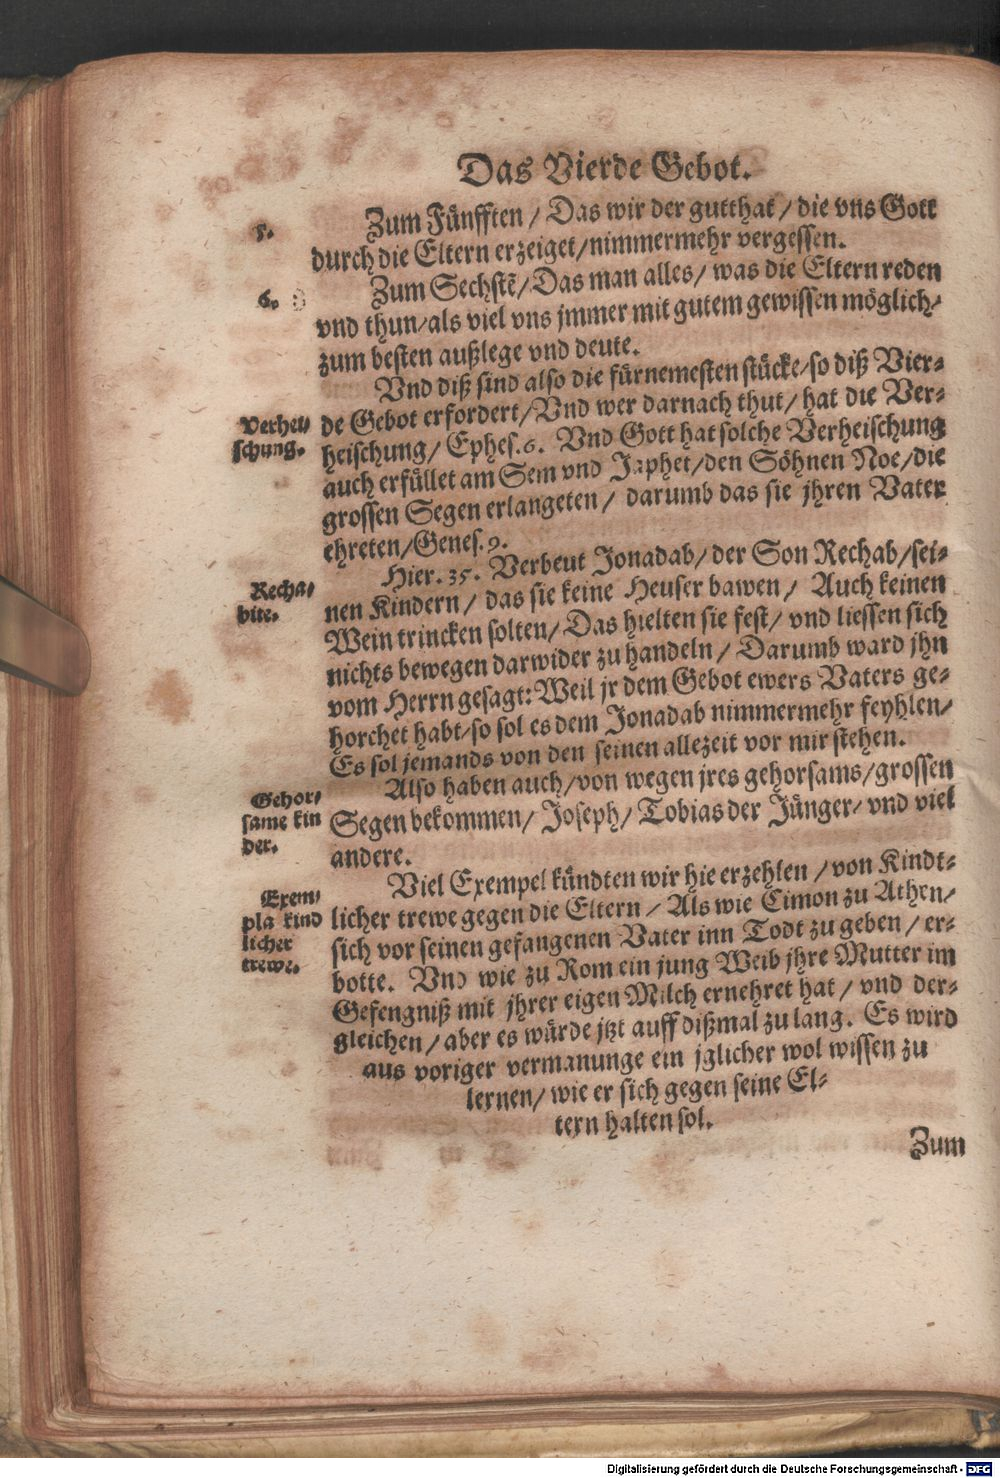 Das Vierde Gebot.
5.
Zum Fünfften / Das wir der gutthat / die vns Gott
durch die Eltern erzeiget/nimmermehr vergessen.
6.
Zum Sechstẽ/Das man alles/ was die Eltern reden
vnd thun/als viel vns jmmer mit gutem gewissen möglich/
zum besten außlege vnd deute.
Vnd diß sind also die fürnemesten stücke/so diß Vier-
de Gebot erfordert/Vnd wer darnach thut/ hat die Ver-
Verhei/
schung.
heischung/ Ephes.6. Vnd Gott hat solche Verheischung
auch erfüllet am Sem vnd Japhet/den Söhnen Noe/die
grossen Segen erlangeten / darumb das sie jhren Vater
ehreten/Genes.9.
Hier. 35. Verbeut Jonadab/ der Son Rechab/sei-
Recha/
bite.
nen Kindern / das sie keine Heuser bawen / Auch keinen
Wein trincken solten/ Das hielten sie fest/ vnd liessen sich
nichts bewegen darwider zu handeln / Darumb ward jhn
vom Herrn gesagt: Weil jr dem Gebot ewers Vaters ge-
horchet habt/so sol es dem Jonadab nimmermehr feyhlen/
Es sol jemands von den seinen allezeit vor mir stehen.
Also haben auch/von wegen jres gehorsams/grossen
Gehor/
same kin
der.
Segen bekommen/ Joseph/ Tobias der Jünger/ vnd viel
andere.
Viel Exempel kündten wir hie erzehlen / von Kindt-
Exem/
pla kind
licher
trewe.
licher trewe gegen die Eltern / Als wie Cimon zu Athen/
sich vor seinen gefangenen Vater inn Todt zu geben / er-
botte. Vnd wie zu Rom ein jung Weib jhre Mutter im
Gefengniß mit jhrer eigen Milch ernehret hat / vnd der-
gleichen / aber es würde jtzt auff dißmal zu lang. Es wird
aus voriger vermanunge ein jglicher wol wissen zu
lernen/ wie er sich gegen seine El-
tern halten sol.
Zum
Digitalisierung gefördert durch die Deutsche Forschungsgemeinschaft - DFG